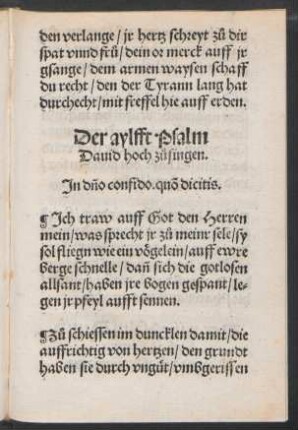 den verlange / jr hertz schreyt zů dir
spat vnnd frů / dein or merck auff jr
gsange / dem armen waysen schaff
du recht / den der Tyrann lang hat
durchecht / mit freffel hie auff erden.
Der aylfft Psalm
Dauid hoch zůsingen.
In dño confido. quõ dicitis.
¶ Ich traw auff Got den Herren
mein / was sprecht jr zů meinr sele / sy
sol fliegn wie ein vögelein / auff ewre
berge schnelle / dañ sich die gotlosen
allsant / haben jre bogen gespant / le-
gen jr pfeyl aufft sennen.
¶ Zů schiessen im duncklen damit / die
auffrichtig von hertzen / den grundt
haben sie durch vngůt / vmbgerissen